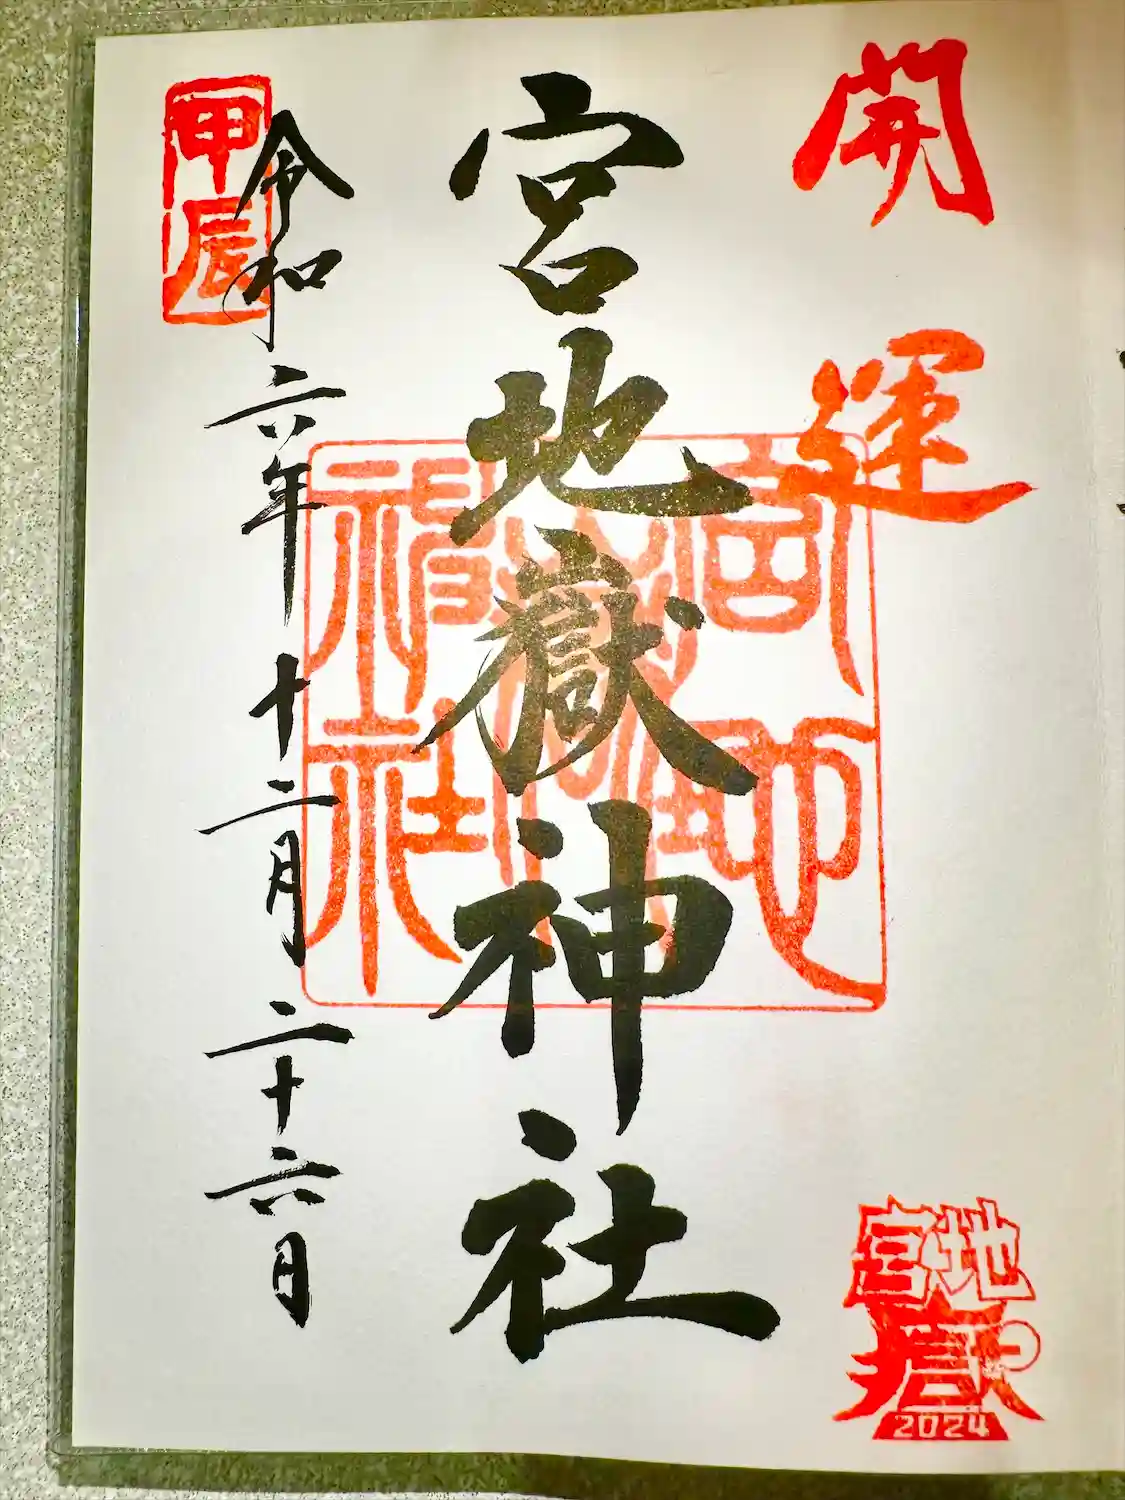 開運
宮地嶽神社
宮地嶽神社
甲辰
令和六年十二月二十六日
宮地
嶽
2024